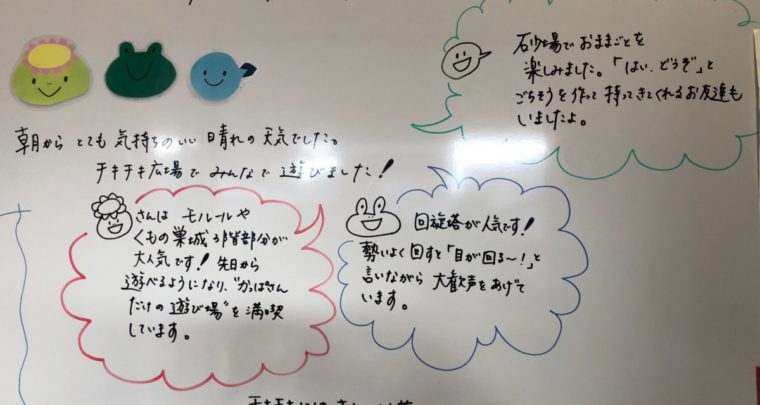 朝から とても 気持ちのいい 晴れの 天気でした。
チキチキ広場で みんなで 遊びました!
砂場で おままごとを
楽しみました。「はい、どうぞ」と
ごちそうを 作って 持ってきてくれる お友達も
いましたよ。
さんは モルールや
くもの巣城 3階部分が
大人気です! 先日から
遊べるようになり、"かっぱさん
だけの 遊び場"を 満喫
しています。
回旋塔が 人気です!
勢いよく 回すと「目が回る〜!」と
言いながら 大歓声を あげて
います。